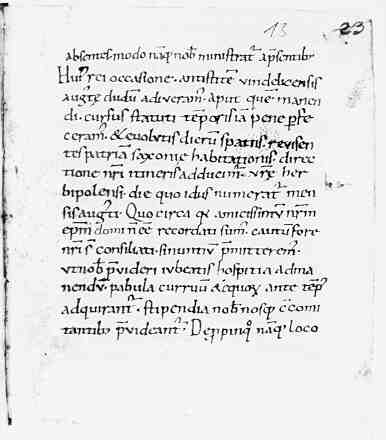 13 23
absentes modo nāq nob ministrat᷎ apsentib;
Hui᷎ rei occasione. antistitē vindelicensis
aug̅tę dudū adiveram᷎. aput quē manen
di. cursus statuti tēporis iā pene pfe
ceram᷎. & evolutis dierū spatiis. revisen
tes patriā saxonie habitationis. direc
tione nr̄i itineris adducim᷎. vr̄e her
bipolensi. die quo idus numerat᷎ men
sis aug̅ti. Quo circa qx amicissimū nr̄m
ep̄m domi n̄ ee recordati sum᷎. cautū fore
nr̄i s̄t consiliati. sinuntiū p̄mitterem᷎.
ut nob p̄videri iubeatis hospitia ad ma
nendū. pabula curruū acquox ante tēp᷎
adquirant᷎. stipendia nob nosq; c̄comi
tantib; p̄videant᷎. Deppinq᷎ nāq loco